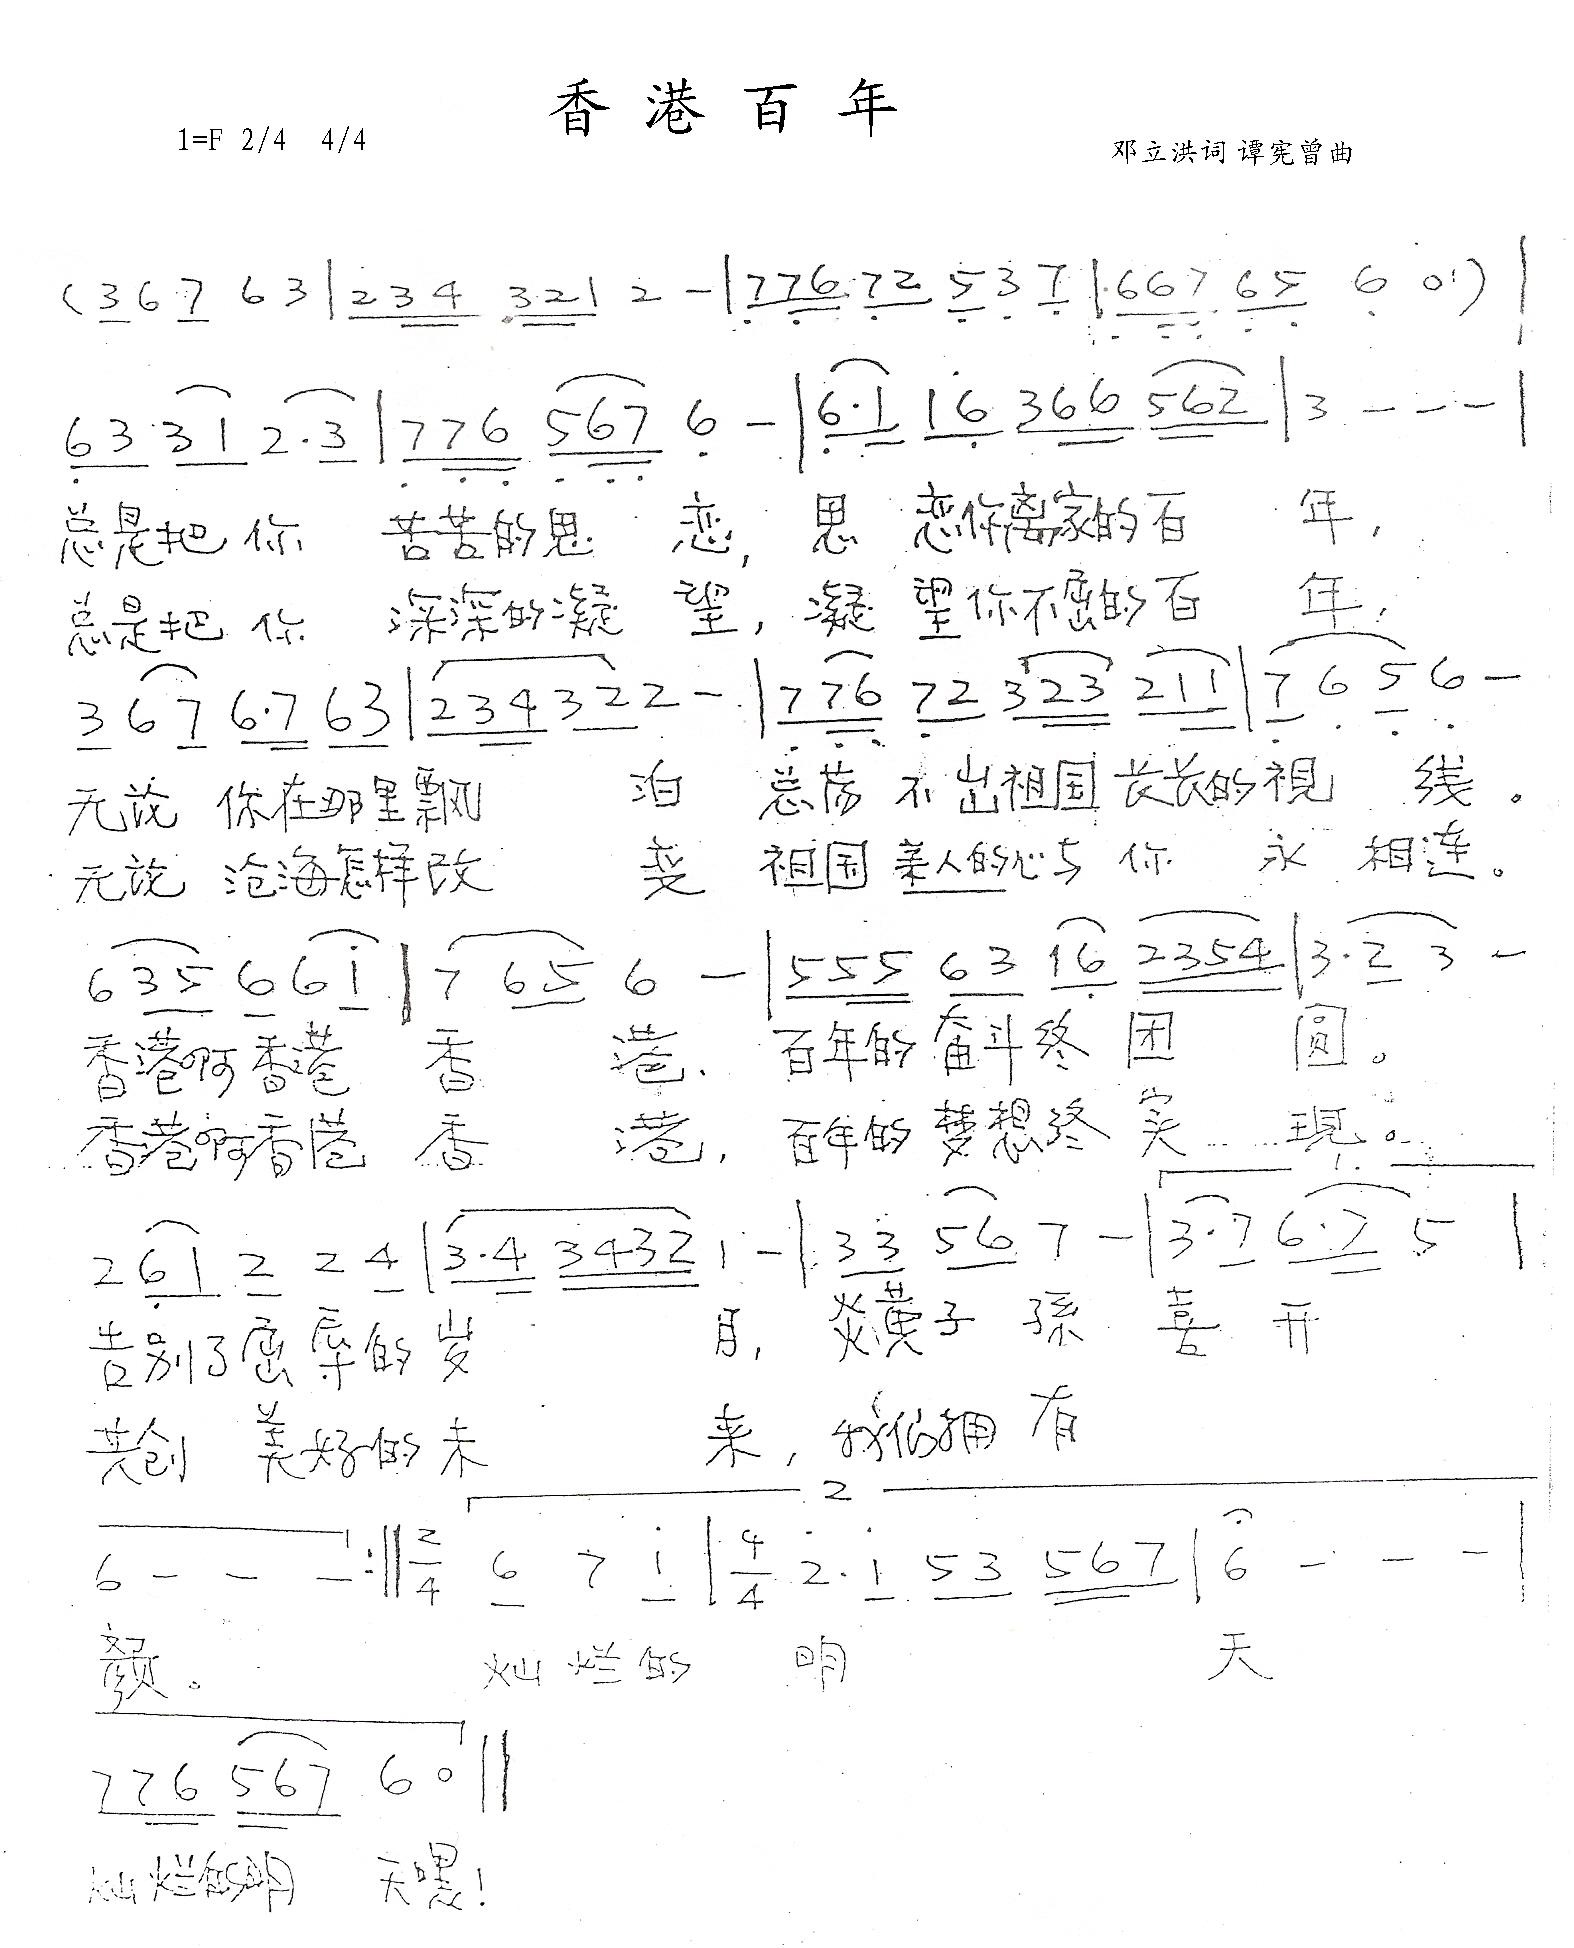 香港百年
1=F 2/4 4/4
邓立洪词 谭宪曾曲
(3 6 7 6 3 | 2 3 4 3 2 1 2 - | 7 7 6 7 2 5 3 7 | 6 6 7 6 5 6 0 ) |
6 3 3 1 2·3 | 7 7 6 5 6 7 6 - | 6·1 1 6 3 6 6 5 6 2 | 3 - - - |
总是把你 苦苦的思 恋, 思 恋你离家的百 年,
总是把 你 深深的凝 望, 凝 望你不屈的百 年,
3 6 7 6·7 6 3 | 2 3 4 3 2 2 - | 7 7 6 7 2 3 2 3 2 1 1 | 7 6 5 6 -
无论 你在那里飘 泊 总荡 不出祖国 长长的視 线。
无论 沧海怎样改 变 祖国亲人的心与 你 永 相连。
6 3 5 6 6 i | 7 6 5 6 - | 5 5 5 6 3 1 6 2 3 5 4 | 3·2 3 -
香港啊香港 香 港. 百年的奋斗终 团 圆。
香港啊香港 香 港, 百年的梦想终 实 現。
1.
2 6 1 2 2 4 | 3·4 3 4 3 2 1 - | 3 3 5 6 7 - | 3·7 6·7 5 |
告别了屈辱的岁 月, 炎黄子 孫 喜 开
共创 美好的未 来, 我们拥 有
2
6 - - - :‖ 2/4 6 7 i | 4/4 2·i 5 3 5 6 7 | 6 - - - |
颜。 灿 烂 的 明 天
7 7 6 5 6 7 6 0 ‖
灿烂的明 天嘿!